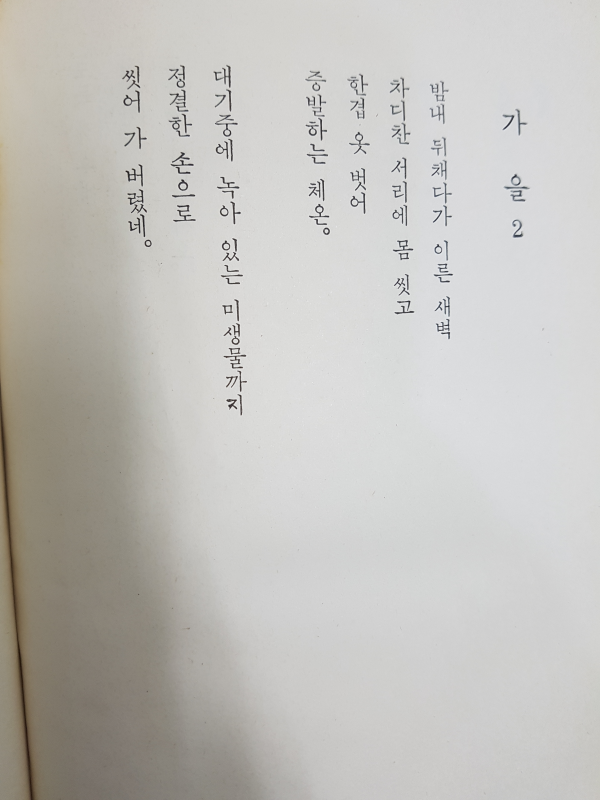 가을 2
밤내 뒤채다가 이른 새벽
차디찬 서리에 몸 씻고
한겹 옷 벗어
증발하는 체온。
대기중에 녹아 있는 미생물까지
정결한 손으로
씻어 가 버렸네。